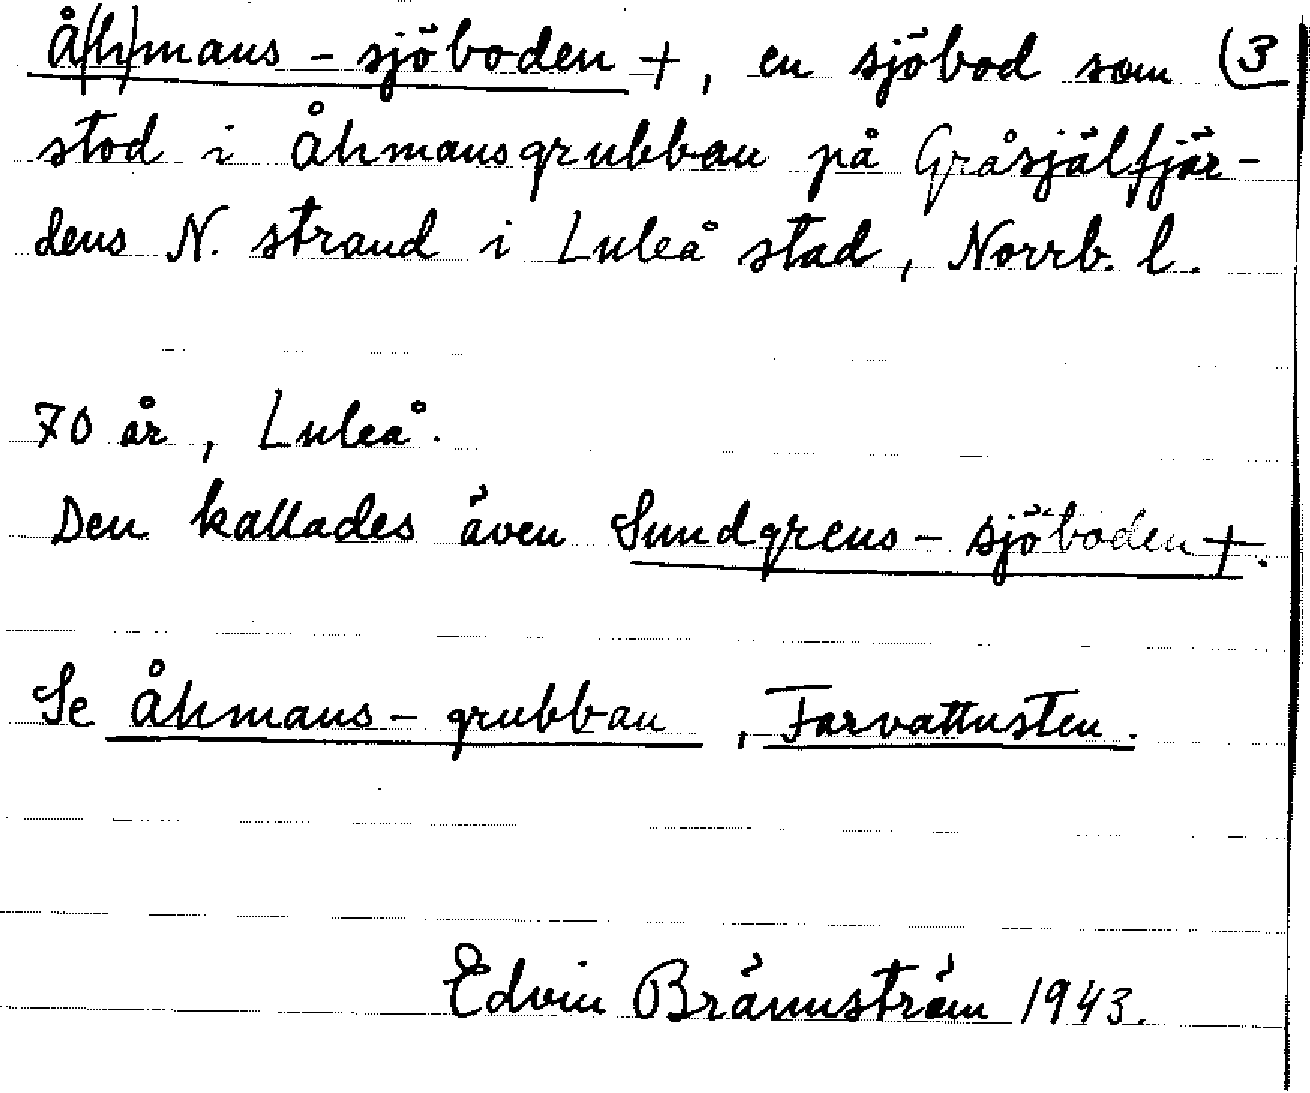 Å(h)mans-sjöboden +, en sjöbod som (3
stod i Åhmansgrubban på Gråsjälfjär-
dens N. strand i Luleå stad, Norrb. l.
70 år, Luleå.
Den kallades även Sundgrens-sjöboden +.
Se Åhmans-grubban, Farvattnsten.
Edvin Brännström 1943.